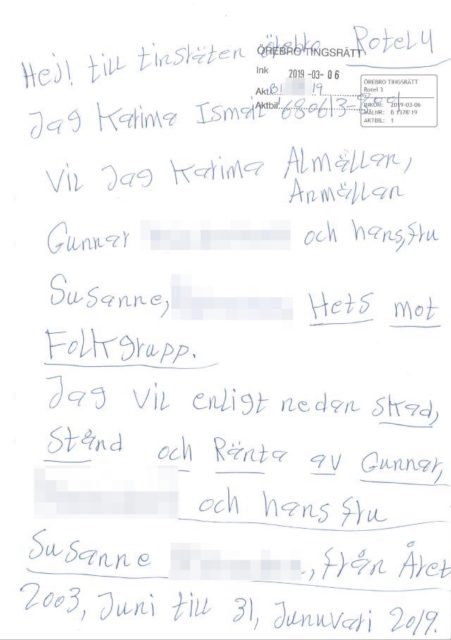 Hej! till tinsräten örebro Rotel 4
ÖREBRO TINGSRÄTT
Ink 2019-03-06
Akt. B 19
Aktbil.
ÖREBRO TINGSRÄTT
Rotel 3
INKOM: 2019-03-06
MÅLNR: B 1378-19
AKTBIL: 1
Jag Karima Ismail 680613-
Vil Jag Karima Almällan,
Anmällan
Gunnar och hans, fru
Susanne, Hets mot
Folkgrupp.
Jag vil enligt nedan skad,
stånd och Ränta av Gunnar,
och hans fru
Susanne , från Året
2003, Juni till 31, Junuvari 2019.